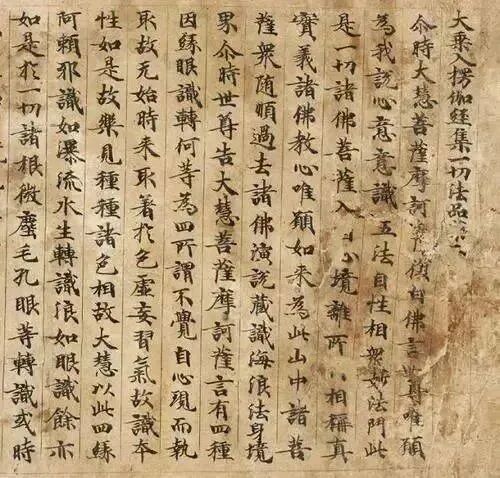 大乘入楞伽經集一切法品
尒時大慧菩薩摩訶薩復白佛言世尊唯願
為我說心意意識五法自性相衆妙法門此
是一切諸佛菩薩入心境離所相稱真
實義諸佛教心唯願如来為此山中諸菩
薩衆随順過去諸佛演說藏識海浪法身境
界尒時世尊告大慧菩薩摩訶薩言有四種
因緣眼識轉何等為四所謂不覺自心現而執
取故无始時来取著於色虛妄習氣故識本
性如是故樂見種種諸色相故大慧以此四緣
阿賴耶識如瀑流水生轉識浪如眼識餘亦
如是於一切諸根微塵毛孔眼等轉識或時